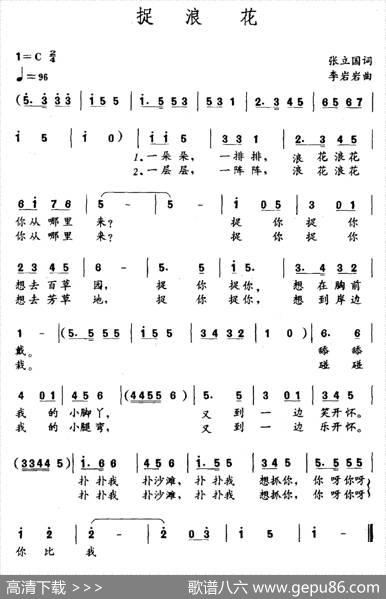 捉 浪 花
1=C 2/4
♩=96
张立国词
李岩岩曲
(5. 3 3 3 | i 5 5 | i. 5 5 3 | 5 3 1 | 2. 3 4 5 | 6 5 6 7 |
i 5 | i 0) | i i 5 | 3 3 1 | 2. 3 4 5 |
1.一朵朵， 一排排， 浪 花浪花
2.一层层， 一阵阵， 浪 花浪花
6 i 7 6 | 5 - | 5 - | i 0 5 | 3 0 1 |
你从哪里 来？ 捉 你 捉 你
你从哪里 来？ 捉 你 捉 你
2 3 4 5 | 6 - | 5. 5 | i 5. | 3 0 2 3 |
想去百草 园， 捉 你 捉你， 想 在胸前
想去芳草 地， 捉 你 捉你， 想 到岸边
1 - | (5. 5 5 5 | i 5 5 | 3 4 3 2 | 1 0) | 6. 6 |
戴。 瞧瞧
栽。 碰碰
4 0 1 | 4 5 6 | (4 4 5 5 6) | 5. 5 | 3 0 1 | 3 4 5 |
我 的 小脚丫， 又 到 一 边 笑开怀。
我 的 小腿弯， 又 到 一 边 乐开怀。
(3 3 4 4 5) | i. 6 6 | 5 6 6 | 3 4 5 | 5. 5 5 5 |
扑 扑我 扑沙滩， 扑 扑我 想抓你， 你 呀你呀
扑 扑我 扑沙滩， 扑 扑我 想抓你， 你 呀你呀
i 2 | 2 - | 2 0 3 | i - | i 0 ‖
你 比 我
高清下载 >>>
歌谱八六 www.gepu86.com